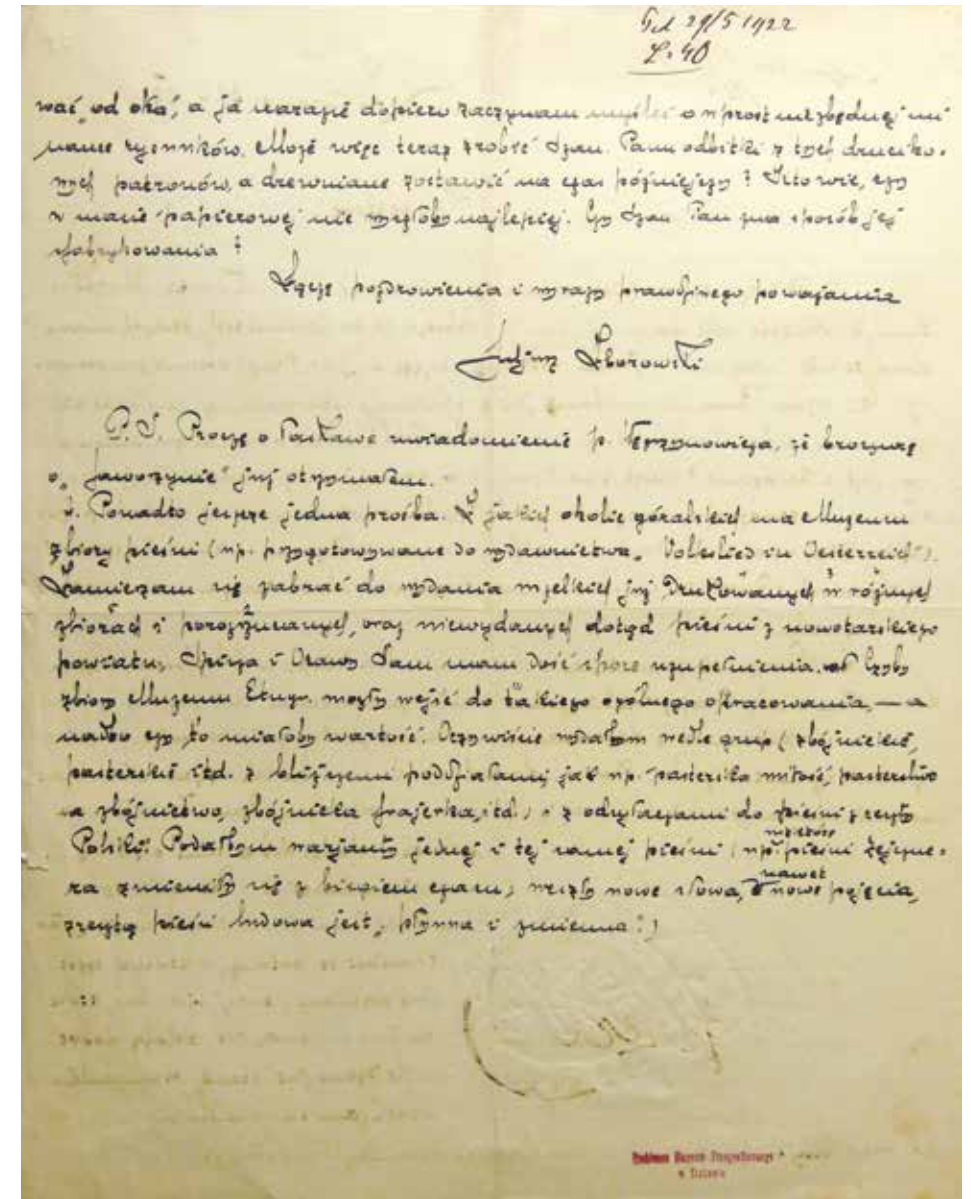 29/5 1922
L: 40
wać „od oka”, a ja narazie dopiero zaczynam myśleć o wprost niezbędnej mi
nauce rysunków. Może więc teraz zrobić Szan. Panu odbitki z tych
patronów, a drewniane zostawić na czas późniejszy? Kto wie, czy
w masie papierowej nie wyszłoby najlepiej. Czy Szan Pan zna sposób jej
fabrykowania?
Łączę pozdrowienia i wyrazy prawdziwego poważania
Juljusz Zborowski
P. S. Proszę o łaskawe zawiadomienie p. że broszurę
o „Jaworzynie” już otrzymałem.
Ponadto jeszcze jedna prośba. Z jakich okolic góralskich ma Muzeum
zbiory pieśni (np. przygotowywane do wydawnictwa „Volkslied in Oesterreich”).
Zamierzam się zabrać do wydania wszelkich już drukowanych w różnych
zbiorach i porozrzucanych, oraz niewydanych dotąd pieśni z nowotarskiego
powiatu, Spisza i Orawy. Sam mam dość spore uzupełnienia. Czyby
zbiory Muzeum Etnogr. mogły wejść do takiego ogólnego opracowania, — a
czy to miałoby wartość. Oczywiście wydałbym wedle grup (zbójnickie,
pasterskie itd. z bliższemi poddziałami jak np. pasterska miłość, pasterstwo
a zbójnictwo, zbójnicka frajerka, itd.) i z odsyłaczami do pieśni z reszty
Polski. Podałbym warjanty jednej i tej samej pieśni (np. niektóre pieśni
zmieniły się z biegiem czasu, weszły nowe słowa, nawet nowe pojęcia,
zresztą pieśń ludowa jest „płynna i zmienna”.)